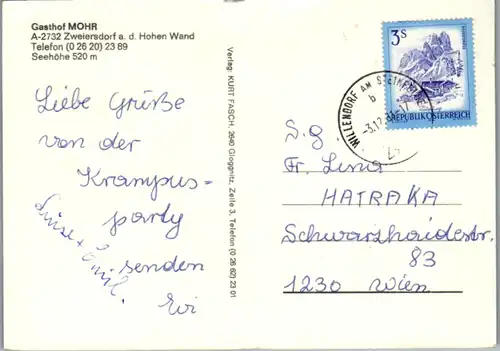 Gasthof MOHR
A-2732 Zweiersdorf a. d. Hohen Wand
Telefon (0 26 20) 23 89
Seehöhe 520 m
Liebe Grüße
von der
Krampus-
party
senden
Evi
Luise +
Verlag: KURT FASCH, 2640 Gloggnitz, Zeile 3, Telefon (0 26 62) 23 01
3S
REPUBLIK ÖSTERREICH
WILLENDORF AM STEINFELDE
b
S.g.
Fr. Lena
HATRAKA
Schwarzhaidestr.
83
1230 Wien